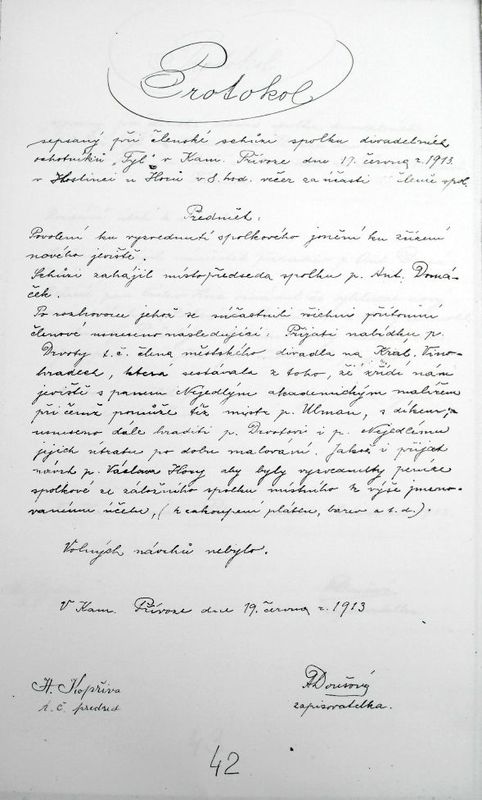 Protokol
sepsaný při členské schůzi spolku divadelních
ochotníků „Tyl" v Kam. Přívoze dne 17. června r. 1913.
v Hostinci u Horů v 8. hod. večer za účasti členů spol.
Předmět:
Povolení ku vyzvednutí spolkového jmění ku zřízení
nového jeviště.
Schůzi zahájil místopředseda spolku p. Ant. Domá-
ček.
Po rozhovoru jehož se súčastnili všichni přítomní
členové usneseno následující: Přijati nabídku p.
Drvoty t. č. člena městského divadla na Král. Vino-
hradech, která sestávala z toho, že zřídí nám
jeviště s panem Nejedlým akademickým malířem
při čemž pomůže též mistr p. Ulman, s díkem, a
usneseno dále hraditi p. Drvotovi i p. Nejedlému
jejich útratu po dobu malování. Jakož i přijat
návrh p. Václava Hory aby byly vyzvednuty peníze
spolkové ze záložního spolku místního k výše jmeno-
vanému účelu, (k zakoupení plátna, barev a t. d.).
Volných návrhů nebylo.
V Kam. Přívoze dne 19. června r. 1913
H. Kopřiva
t. č. předsed
zapisovatelka.
42